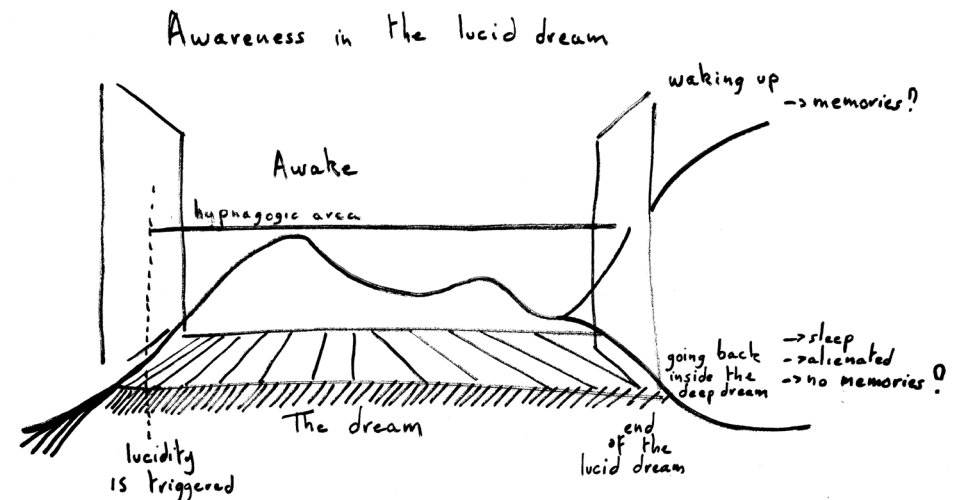 Awareness in the lucid dream
waking up
-> memories?
Awake
hypnagogic area
going back
inside the
deep dream
-> sleep
-> alienated
-> no memories?
The dream
end
of the
lucid dream
lucidity
is triggered